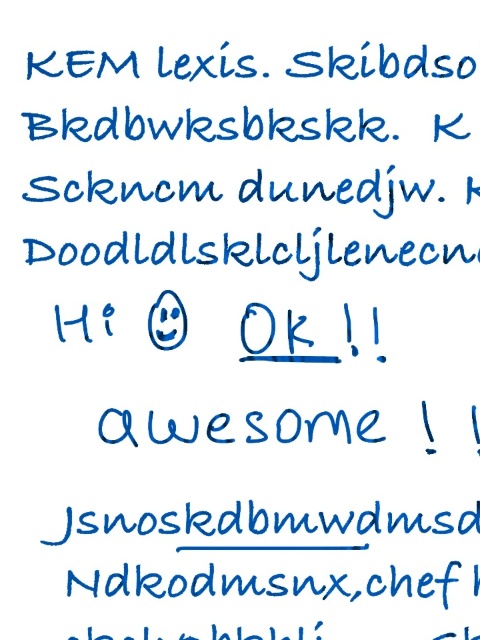 KEM lexis. Skibdso
Bkdbwksbkskk. K
Sckncm dunedjw. K
Doodldlsklcljlenecn
Hi ☺ OK!!
awesome ! !
Jsnoskdbmwdmsd
Ndkodmsnx,chef h